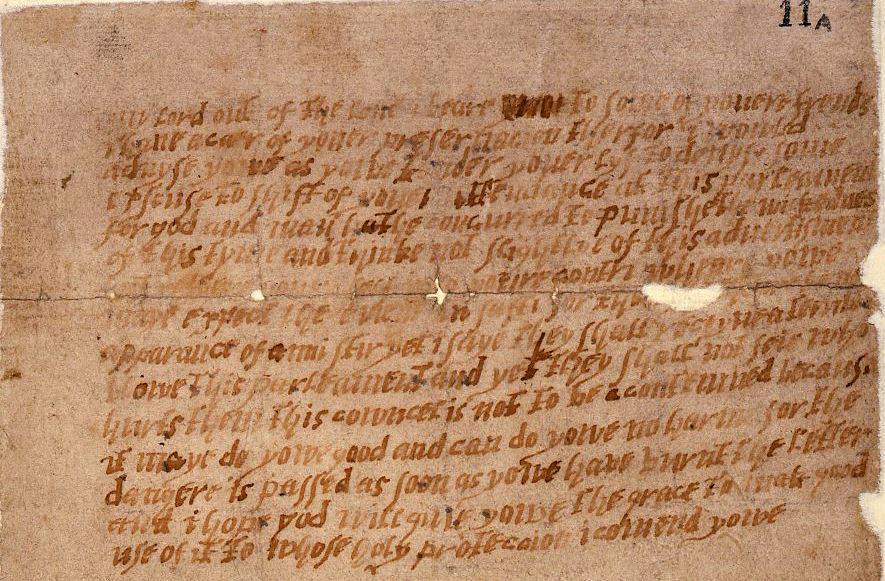 11A
lord out of the beare to some of youere frends
a caer of youer preseruacion therfor i would
aduyse yowe as yowe tender youer lyf to deuys some
epscuse to shift of youer attendance at this parleament
for god and man hathe concurred to punishe the wickednes
of this tyme and thinke not slightlye of this aduertisment
youre contri wheare yowe
expect the in safti for
apparance of anni stir yet i saye they shall receyue a terrible
blowe this parleament and yet they shall not seie who
hurts them this cowncel is not to be acontemned because
it maye do yowe good and can do yowe no harme for the
dangere is passed as soon as yowe have burnt the letter
and i hope god will giue yowe the grace to mak good
use of it to whose holy proteccion i comend yowe